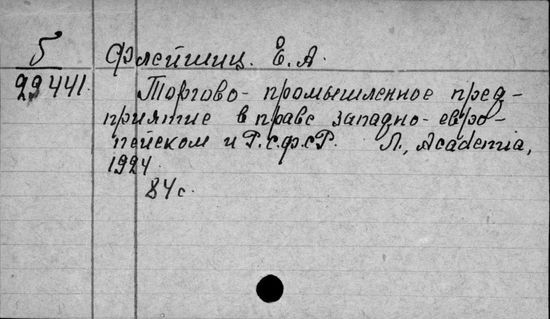 Б Флейшиц. Е. А.
29441. Торгово-промышленное пред-
приятие в праве западно-евро-
пейском и Р.С.Ф.С.Р. Л., Academia,
1924.
84 с.